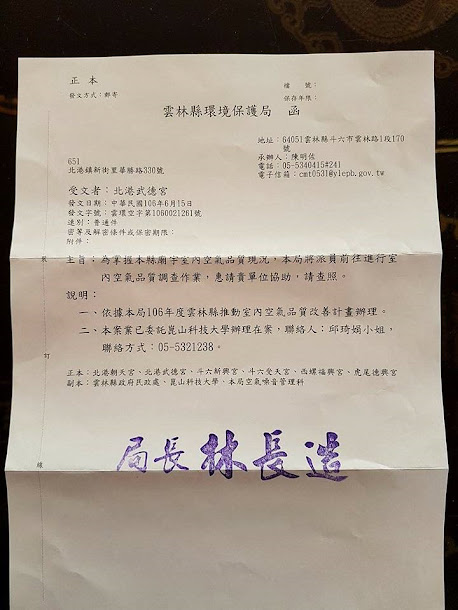 正本
檔　號：
發文方式：郵寄
保存年限：
雲林縣環境保護局　函
地址：64051雲林縣斗六市雲林路1段170
號
承辦人：陳明佐
電話：05-5340415#241
電子信箱：cmt0531@ylepb.gov.tw
651
北港鎮新街里華勝路330號
受文者：北港武德宮
發文日期：中華民國106年6月15日
發文字號：雲環空字第1060021261號
速別：普通件
密等及解密條件或保密期限：
附件：
主旨：為掌握本縣廟宇室內空氣品質現況，本局將派員前往進行室
內空氣品質調查作業，惠請貴單位協助，請查照。
說明：
一、依據本局106年度雲林縣推動室內空氣品質改善計畫辦理。
二、本案業已委託崑山科技大學辦理在案，聯絡人：邱琦娟小姐，
聯絡方式：05-5321238。
正本：北港朝天宮、北港武德宮、斗六新興宮、斗六受天宮、西螺福興宮、虎尾德興宮
副本：雲林縣政府民政處、崑山科技大學、本局空氣噪音管理科
裝
訂
線
局長林長造